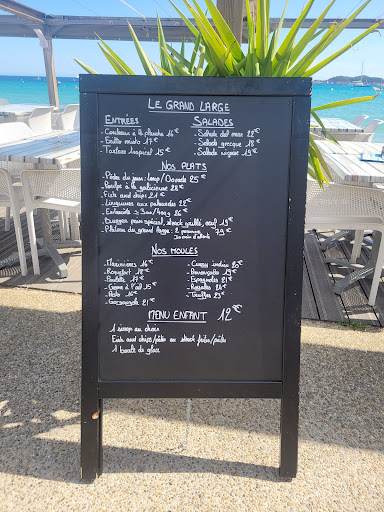 LE GRAND LARGE
ENTRÉES
Couteaux à la plancha 16€
Friture mixte 17€
Tartare tropical 15€
SALADES
Salade del mar 22€
Salade grecque 18€
Salade niçoise 19€
NOS PLATS
Pêche du jour: loup/Dorade 25€
Poulpe à la galicienne 28€
Fish and chips 21€
Linguines aux palourdes 22€
Entrecôte 300/400g 26€
Burger pain spécial, steak grillé, œuf 19€
Plateau du grand large: 2 personnes 39€
NOS MOULES
Marinières 16€
Roquefort 18€
Poulette 17€
Crème à l'ail 15€
Pesto 16€
Gorgonzola 21€
Curry indien 20€
Provençales 19€
Espagnoles 21€
Rouille 21€
Truffes 23€
MENU ENFANT 12€
1 sirop au choix
Fish and chips/pâtes ou steak frites/pâtes
1 boule de glace